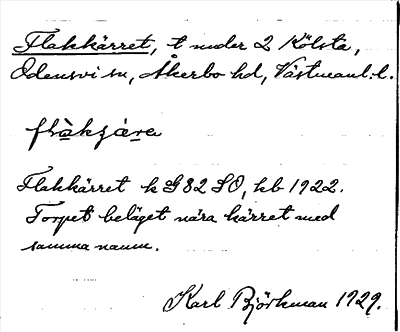 Flakkärret, t under 2 Kölsta,
Odensvi sn, Åkerbo hd, Västmanl. l.
flàkɕä̀ra
Flakkärret h G82 SO, hb 1922.
Torpet beläget nära kärret med
samma namn.
Karl Björkman 1929.